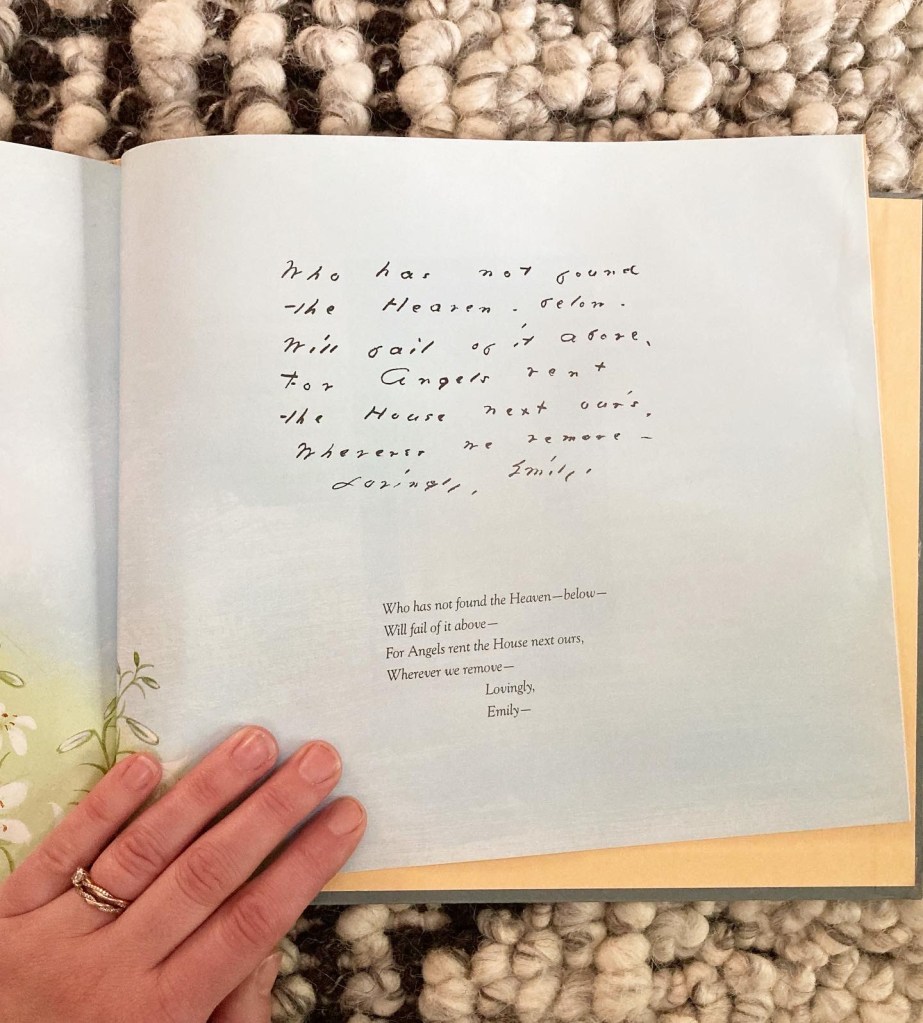 Who has not found
the Heaven - below -
Will fail of it above,
For Angels rent
the House next our's,
Wherever we remove -
Lovingly, Emily.
Who has not found the Heaven—below—
Will fail of it above—
For Angels rent the House next ours,
Wherever we remove—
Lovingly,
Emily—